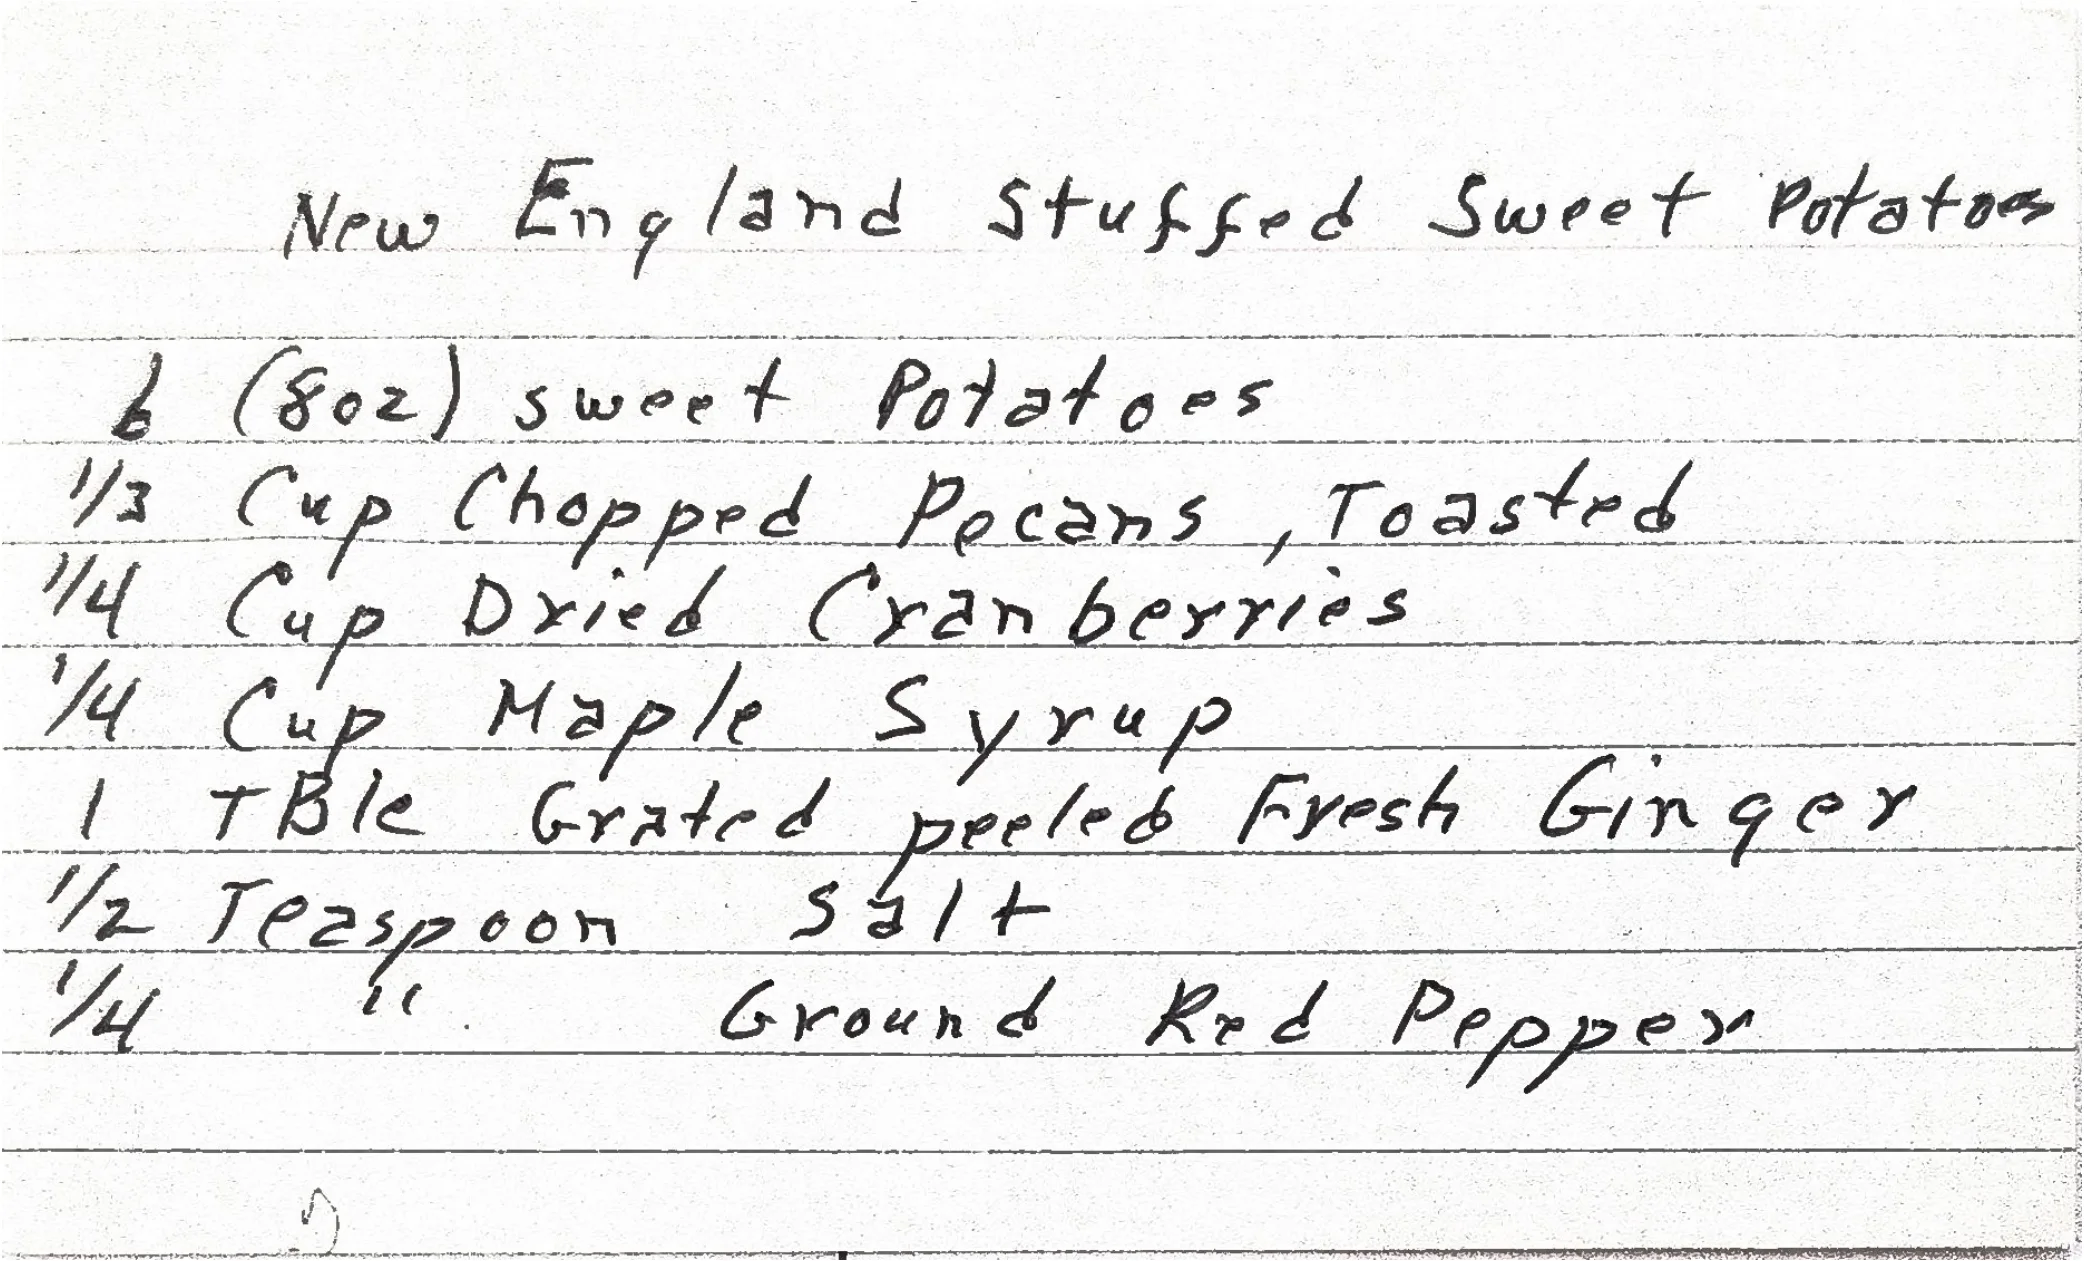 New England Stuffed Sweet Potatoes
6 (8oz) sweet Potatoes
1/3 Cup Chopped Pecans, Toasted
1/4 Cup Dried Cranberries
1/4 Cup Maple Syrup
1 TBle Grated peeled Fresh Ginger
1/2 Teaspoon Salt
1/4 " Ground Red Pepper